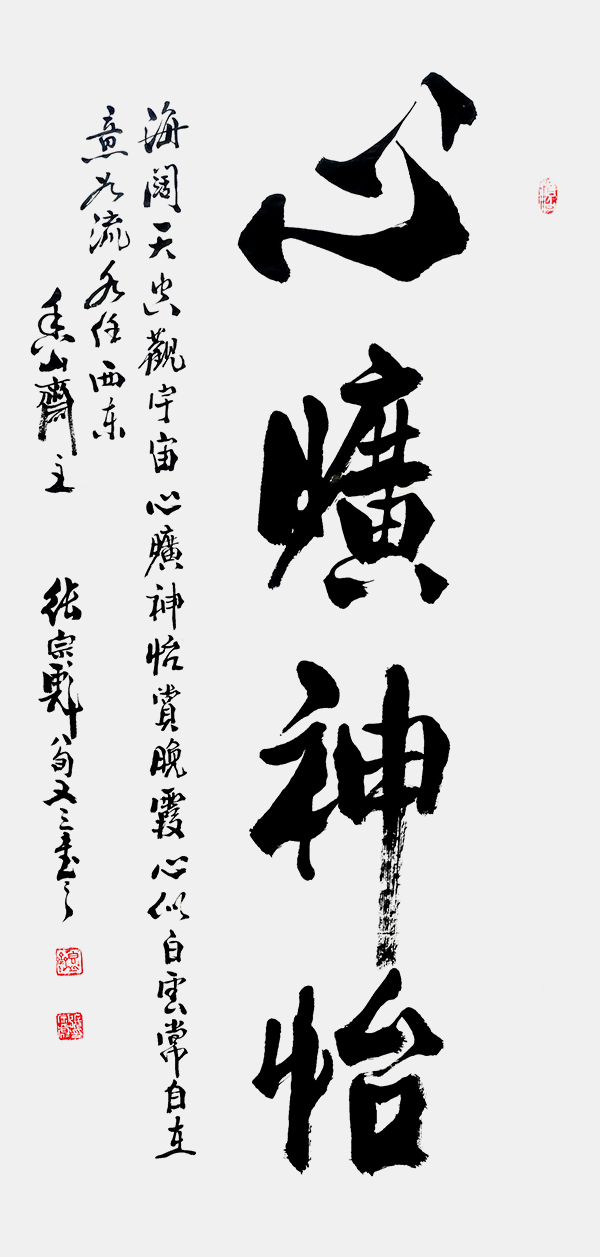 心曠神怡
海闊天空觀宇宙心曠神怡賞晚霞心似白雲常自在
意如流水任西东
香山齋主
张宗彪八旬又三書